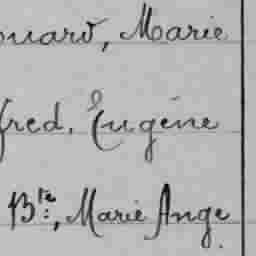 ouard, Marie
fred, Eugène
Bte, Marie Ange.